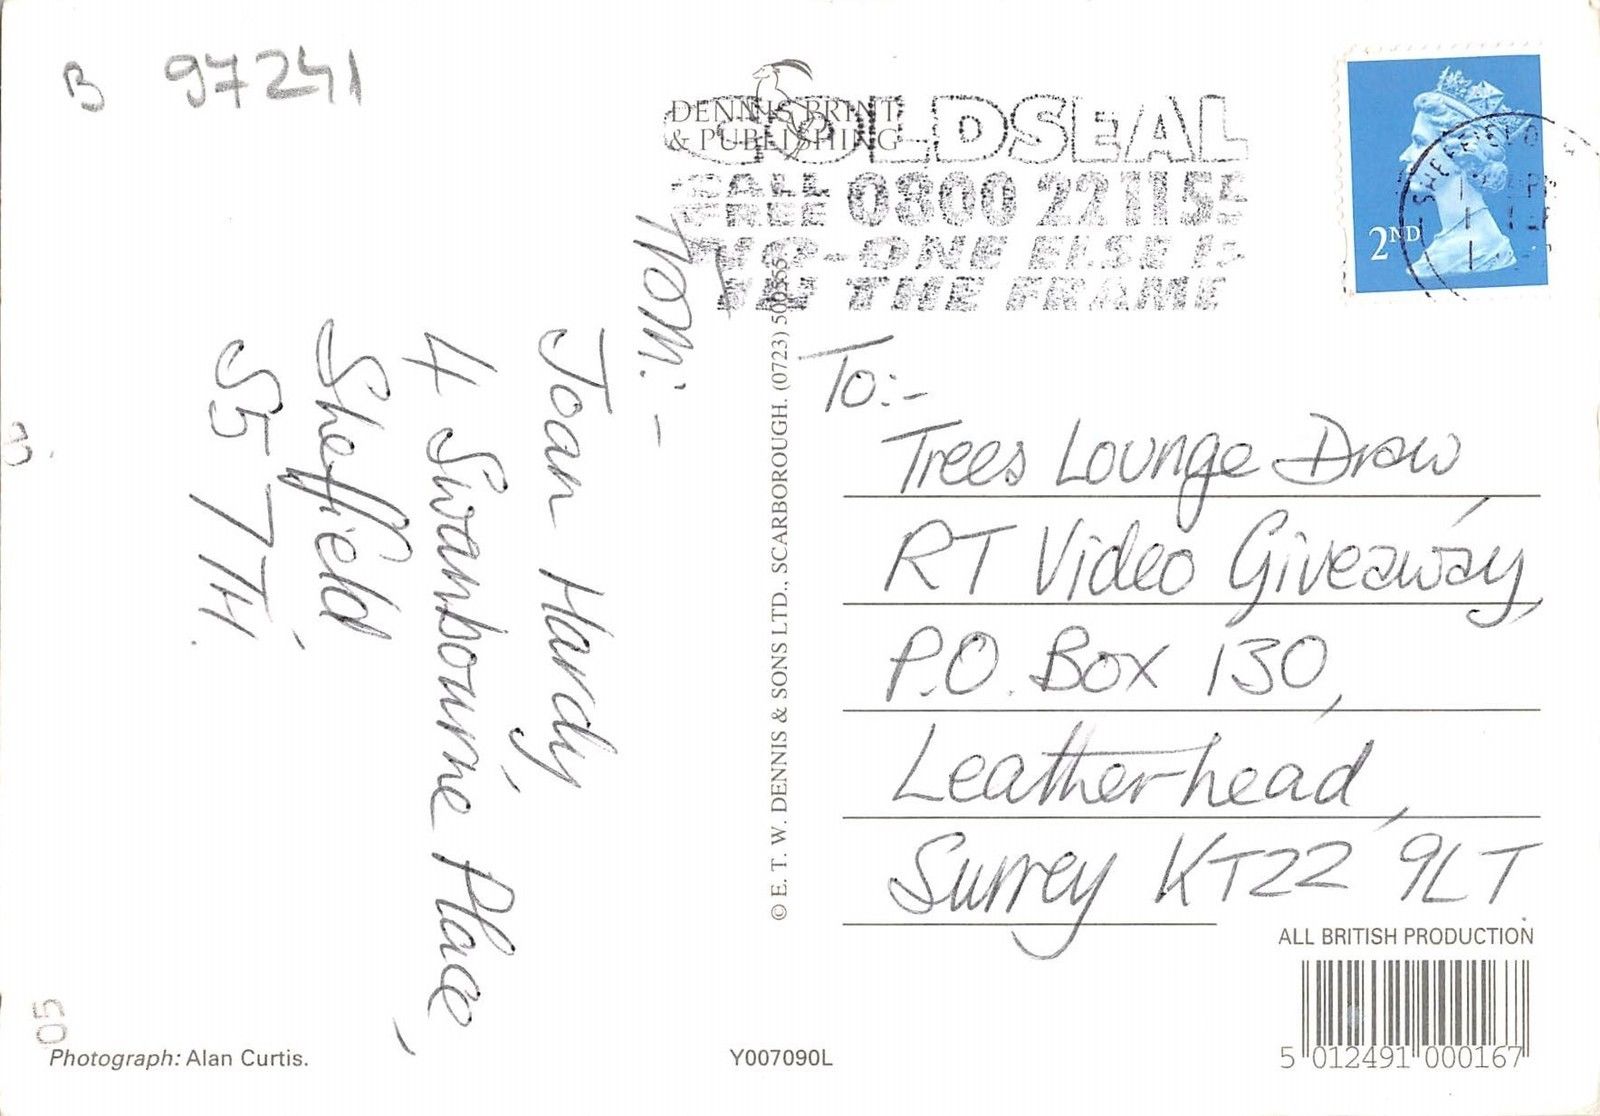 B 97241
DENNIS PRINT
& PUBLISHING
GOLDSEAL
CALL
FREE 0800 22 11 55
NO-ONE ELSE IS
IN THE FRAME
2ND
SHEFFIELD
FROM:-
Joan Hardy,
4 Swanbourne Place,
Sheffield
S5 7TH.
© E. T. W. DENNIS & SONS LTD., SCARBOROUGH. (0723) 500555
To:-
Trees Lounge Draw
RT Video Giveaway,
P.O. Box 130,
Leatherhead,
Surrey KT22 9LT
ALL BRITISH PRODUCTION
5 012491 000167
05
Photograph: Alan Curtis.
Y007090L